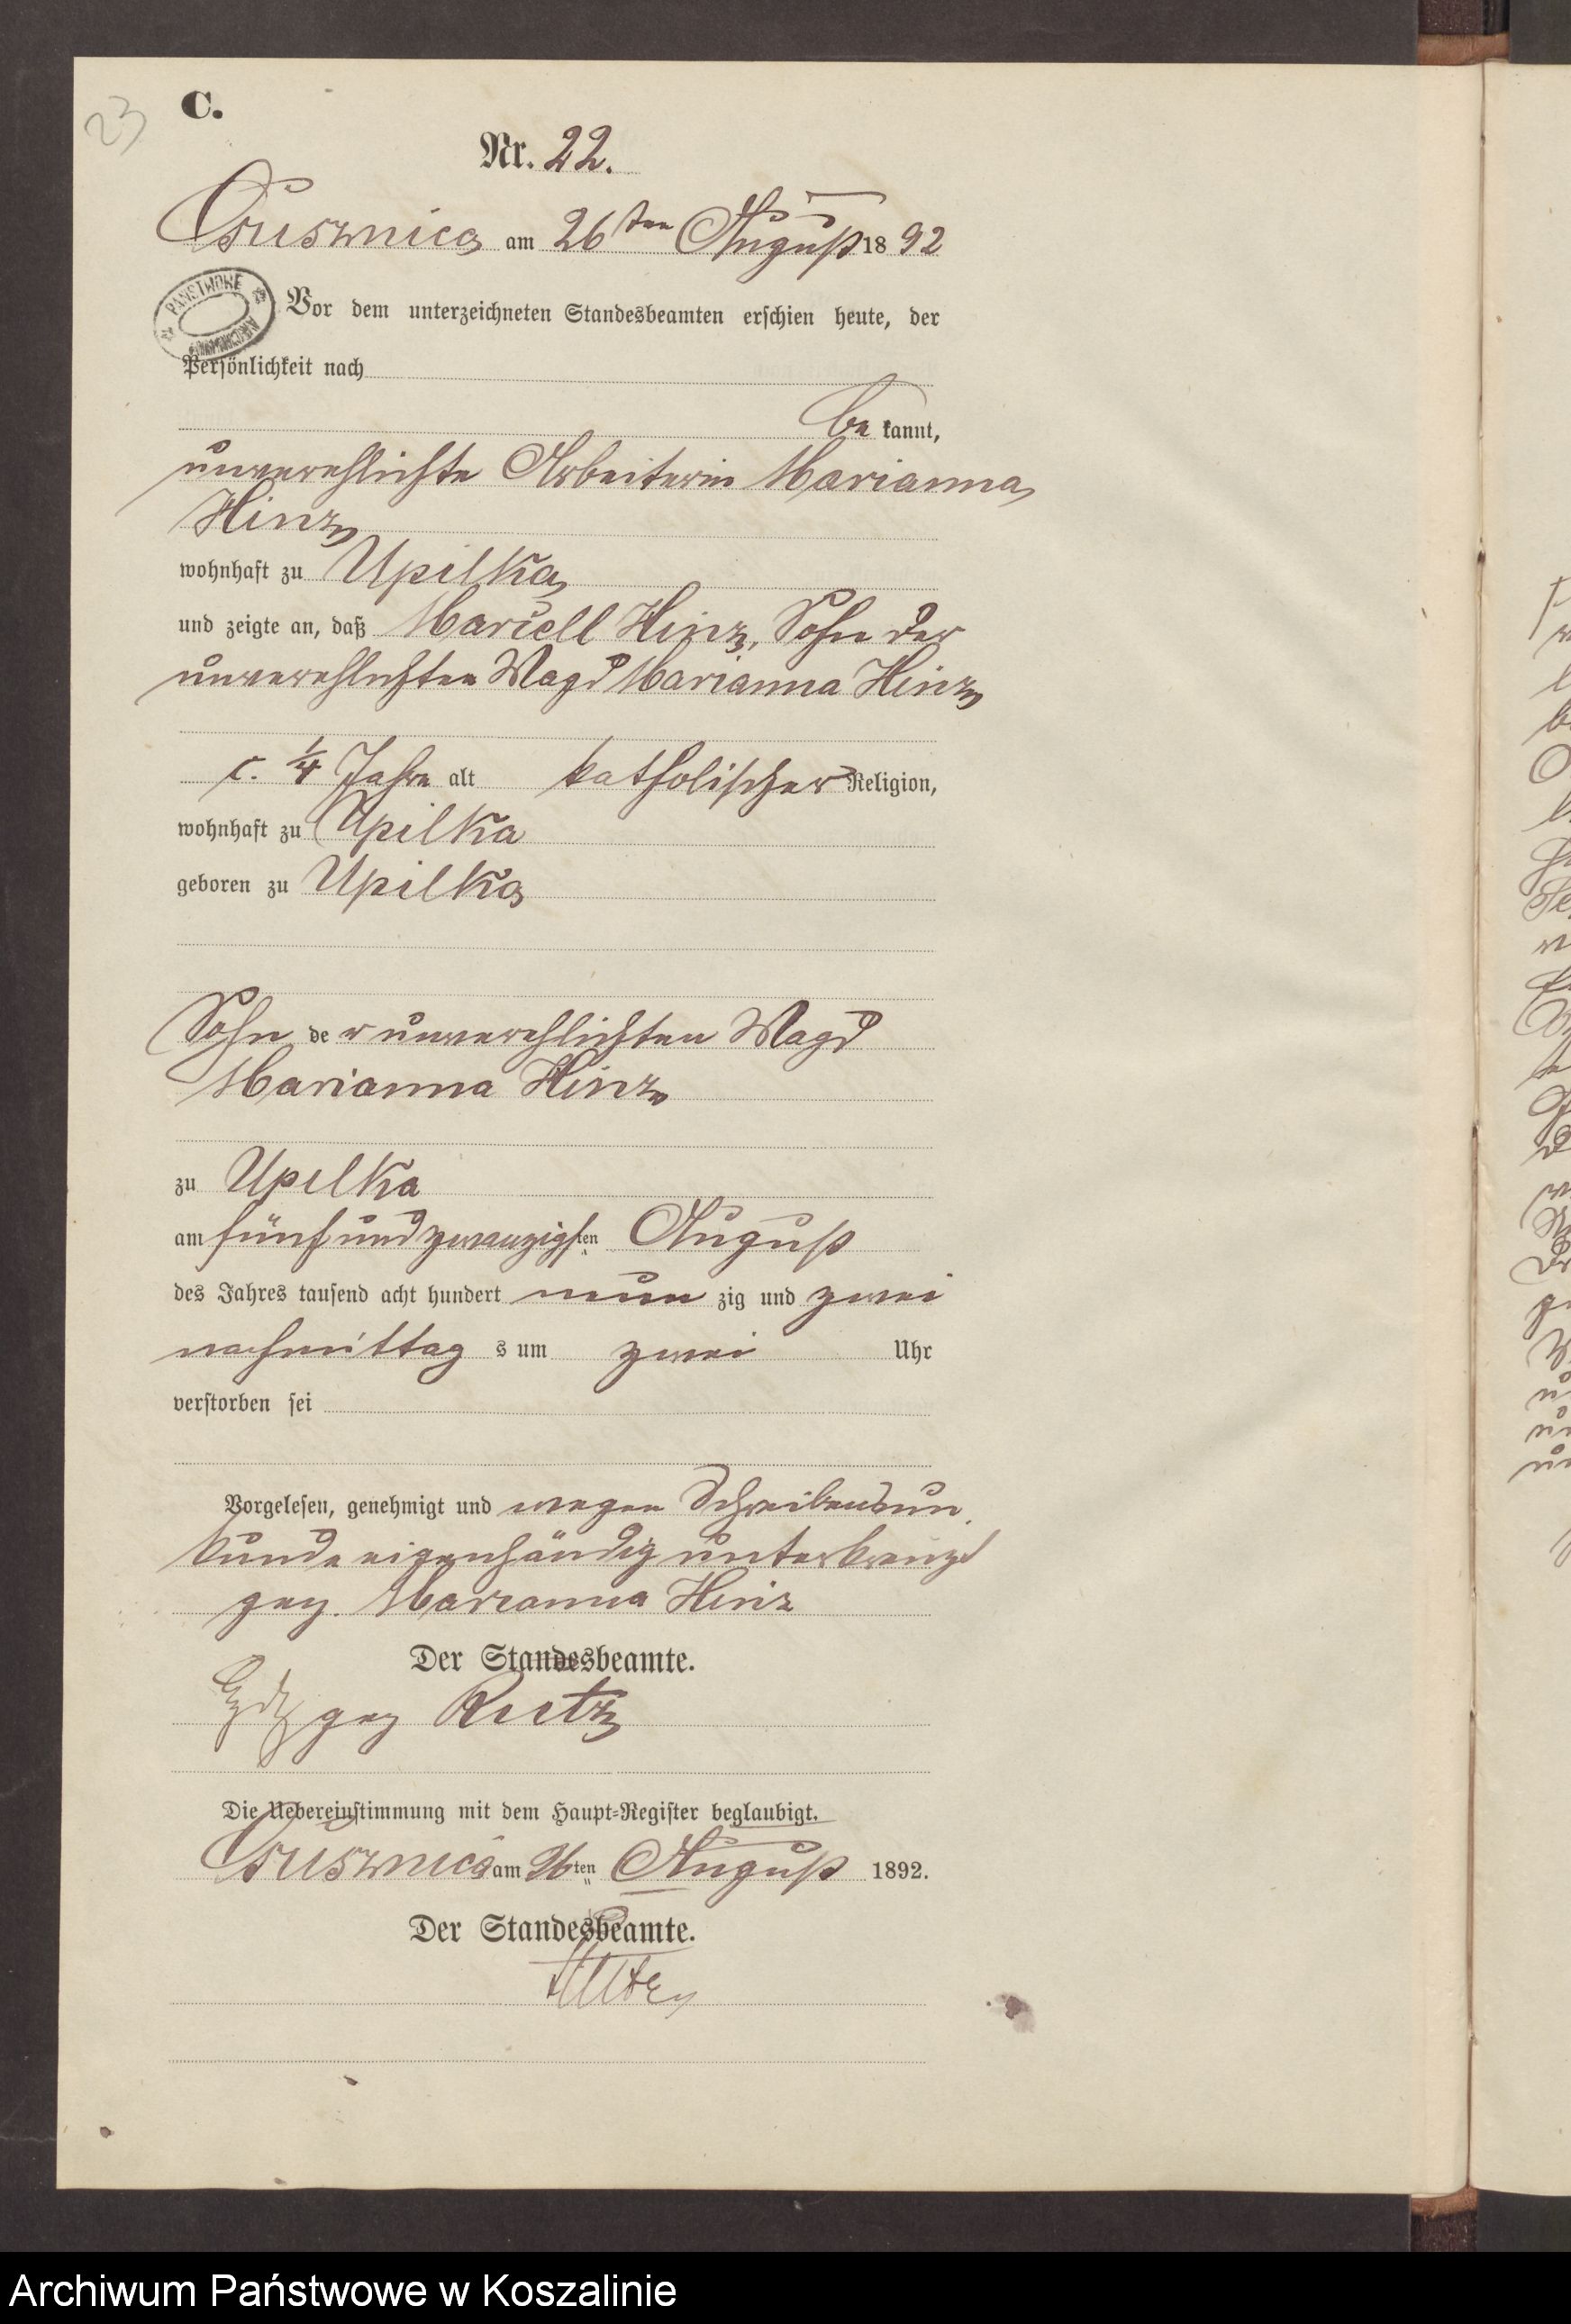 23
C.
Nr. 22.
am 26ten August 1892
PAŃSTWOWE ARCHIWUM
Vor dem unterzeichneten Standesbeamten erschien heute, der
Persönlichkeit nach
be kannt,
unverehlichte Arbeiterin Marianna
Hinz,
wohnhaft zu Upilka,
und zeigte an, daß Marcell Hinz, Sohn der
unverehlichten Magd Marianna Hinz,
c. 1/4 Jahre alt katholischer Religion,
wohnhaft zu Upilka
geboren zu Upilka,
Sohn der unverehlichten Magd
Marianna Hinz
zu Upilka
am fünfundzwanzigsten August
des Jahres tausend acht hundert neunzig und zwei
nachmittags um zwei Uhr
verstorben sei
Vorgelesen, genehmigt und wegen Schreibensun
kunde eigenhändig unterkreuzt
gez. Marianna Hinz
Der Standesbeamte.
gez
Die Uebereinstimmung mit dem Haupt-Register beglaubigt.
am 26ten August 1892.
Der Standesbeamte.
Archiwum Państwowe w Koszalinie